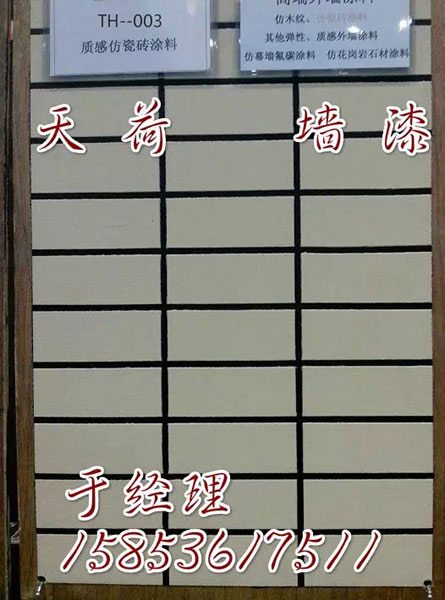 TH--003
质感仿瓷砖涂料
仿木纹、仿瓷砖涂料
其他弹性、质感外墙涂料
仿幕墙氟碳涂料 仿花岗岩石材涂料
天荷 墙漆
于经理
15853617511